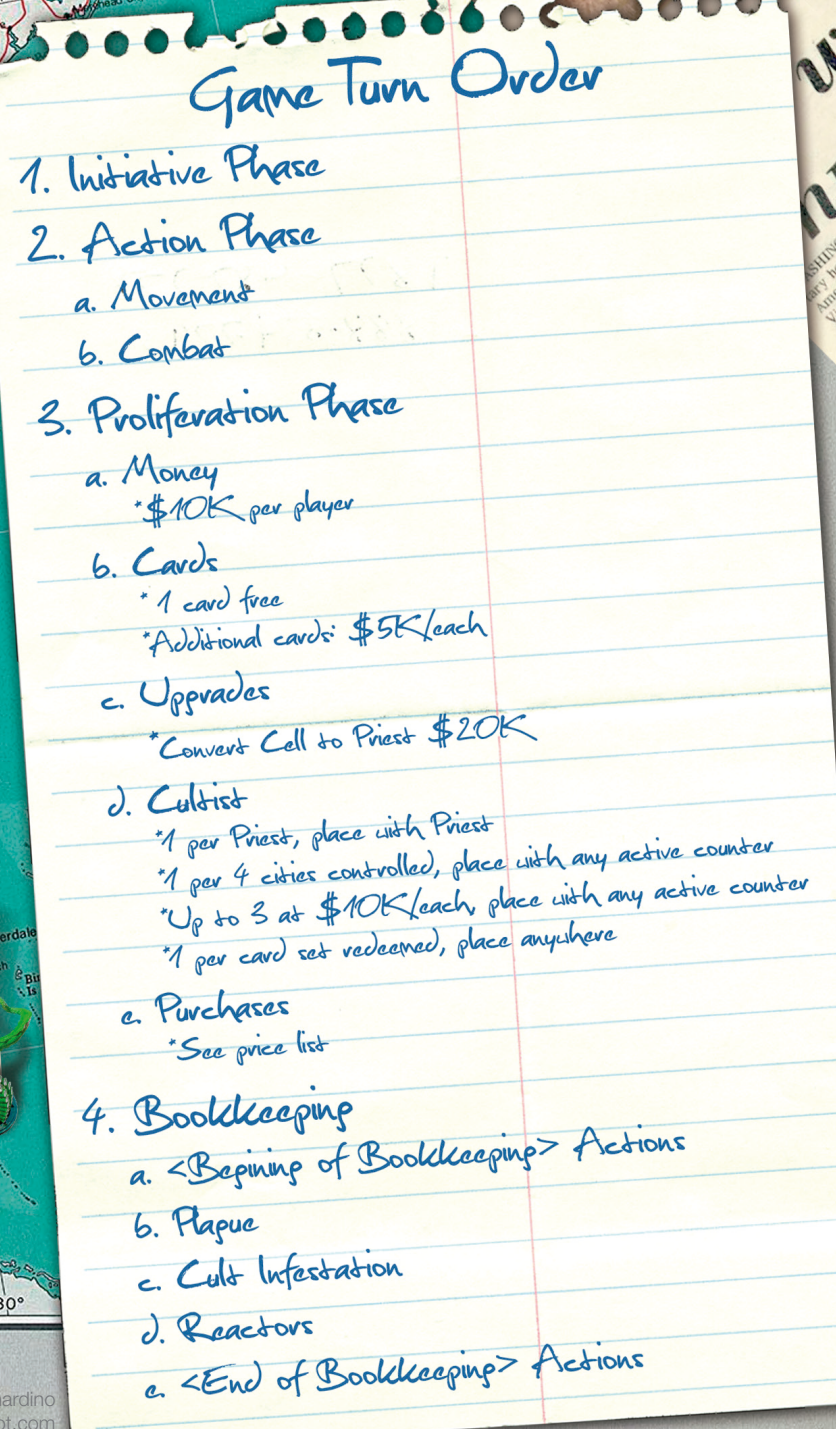 Game Turn Order
1. Initiative Phase
2. Action Phase
a. Movement
b. Combat
3. Proliferation Phase
a. Money
*$10K per player
b. Cards
*1 card free
*Additional cards: $5K/each
c. Upgrades
*Convert Cell to Priest $20K
d. Cultist
*1 per Priest, place with Priest
*1 per 4 cities controlled, place with any active counter
*Up to 3 at $10K/each, place with any active counter
*1 per card set redeemed, place anywhere
e. Purchases
*See price list
4. Bookkeeping
a. <Begining of Bookkeeping> Actions
b. Plague
c. Cult Infestation
d. Reactors
e. <End of Bookkeeping> Actions